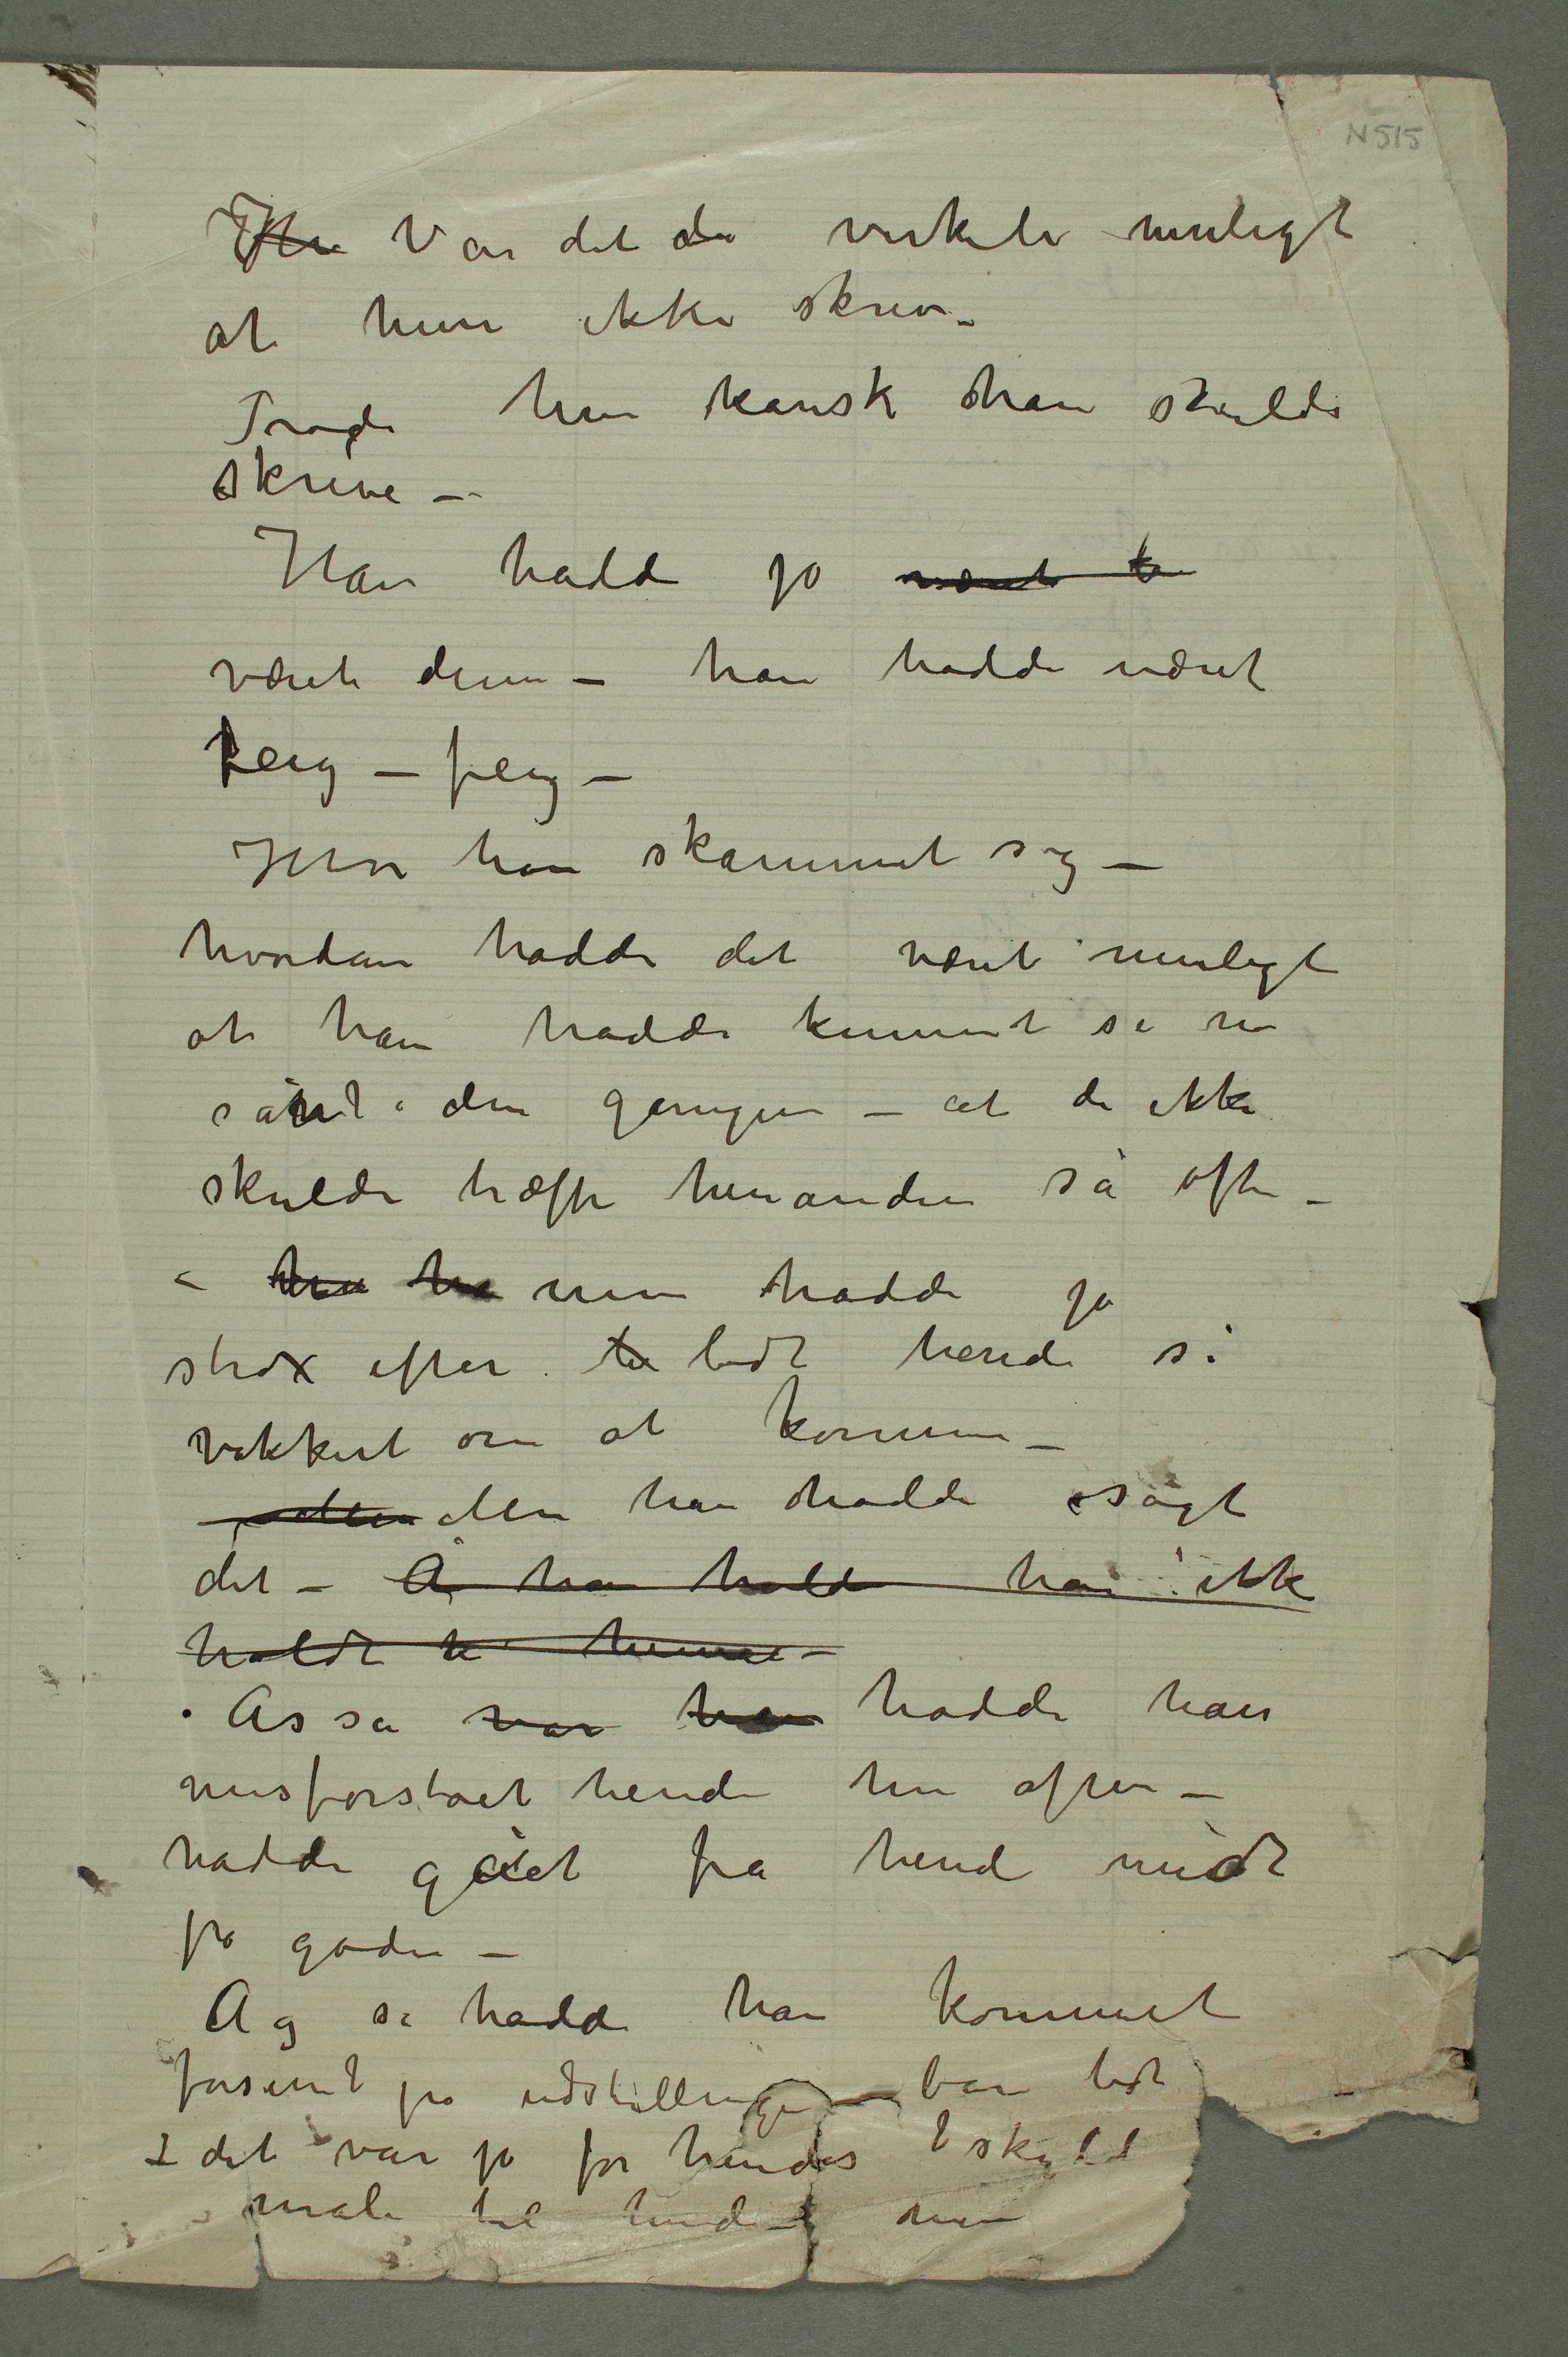 N 515
Hu Var det da virkeli muligt
at hun ikke skrev –
Trode hun kansk han skulde
skrive –
Han hadde jo været
været dum – han hadde været
feig – feig –
Hvor han skammet sig –
hvordan hadde det været muligt
at han hadde kunnet si no
sånt i den gangen – at de ikke
skulde træffe hverandre så ofte –
– hu ha men hadde jo
strax efter bedt hende si
vakkert om at komme –
– Men Men han hadde sagt
det – Å ha hadde han ikk
holdt
Asså var han hadde han
misforstået hende hin aften –
hadde gåiet fra hende midt
på gaden –
Ag så hadde han kommet
forsent på udstillingen – bare lidt
I det var jo for hendes skyld
male til hende – men